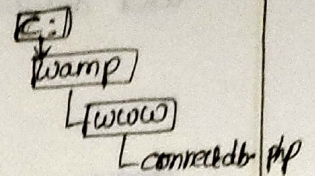 C:
wamp
www
connectdb.php